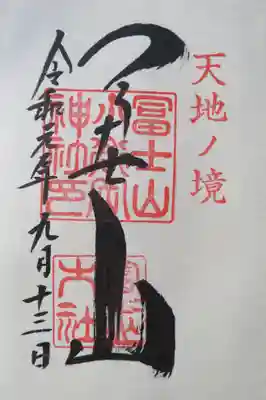 天地ノ境
山
冨士山
小御嶽
神社印
大社
令和元年九月十三日